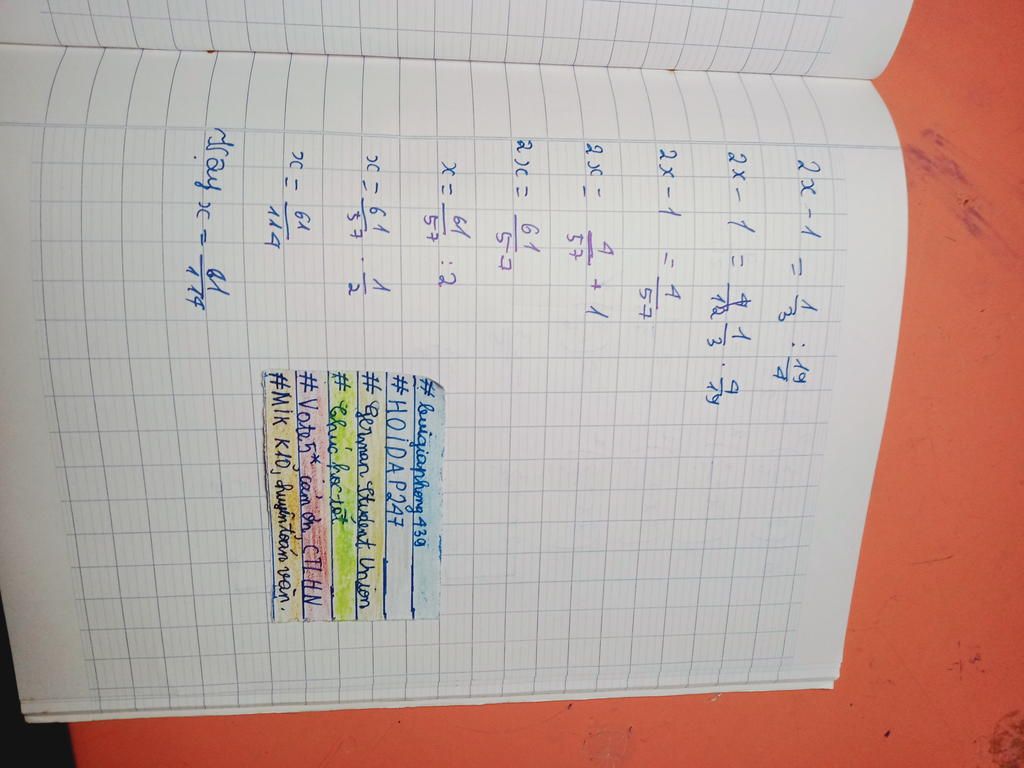 2x - 1 = 1/3 : 19/4
2x - 1 = 1/3 · 4/19
2x - 1 = 4/57
2x = 4/57 + 1
2x = 61/57
x = 61/57 : 2
x = 61/57 · 1/2
x = 61/114
Vậy x = 61/114
# buigiaphong439
# HOIDAP247
# German Student Union
# Chúc học tốt
# Vote5* cảm ơn CTLHN
# Mik K10, chuyên toán văn.